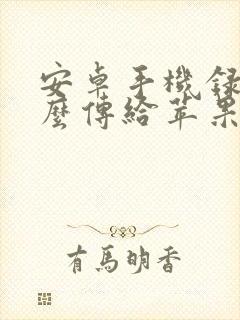 安卓手機錄
麼傳給苹果
有馬明香